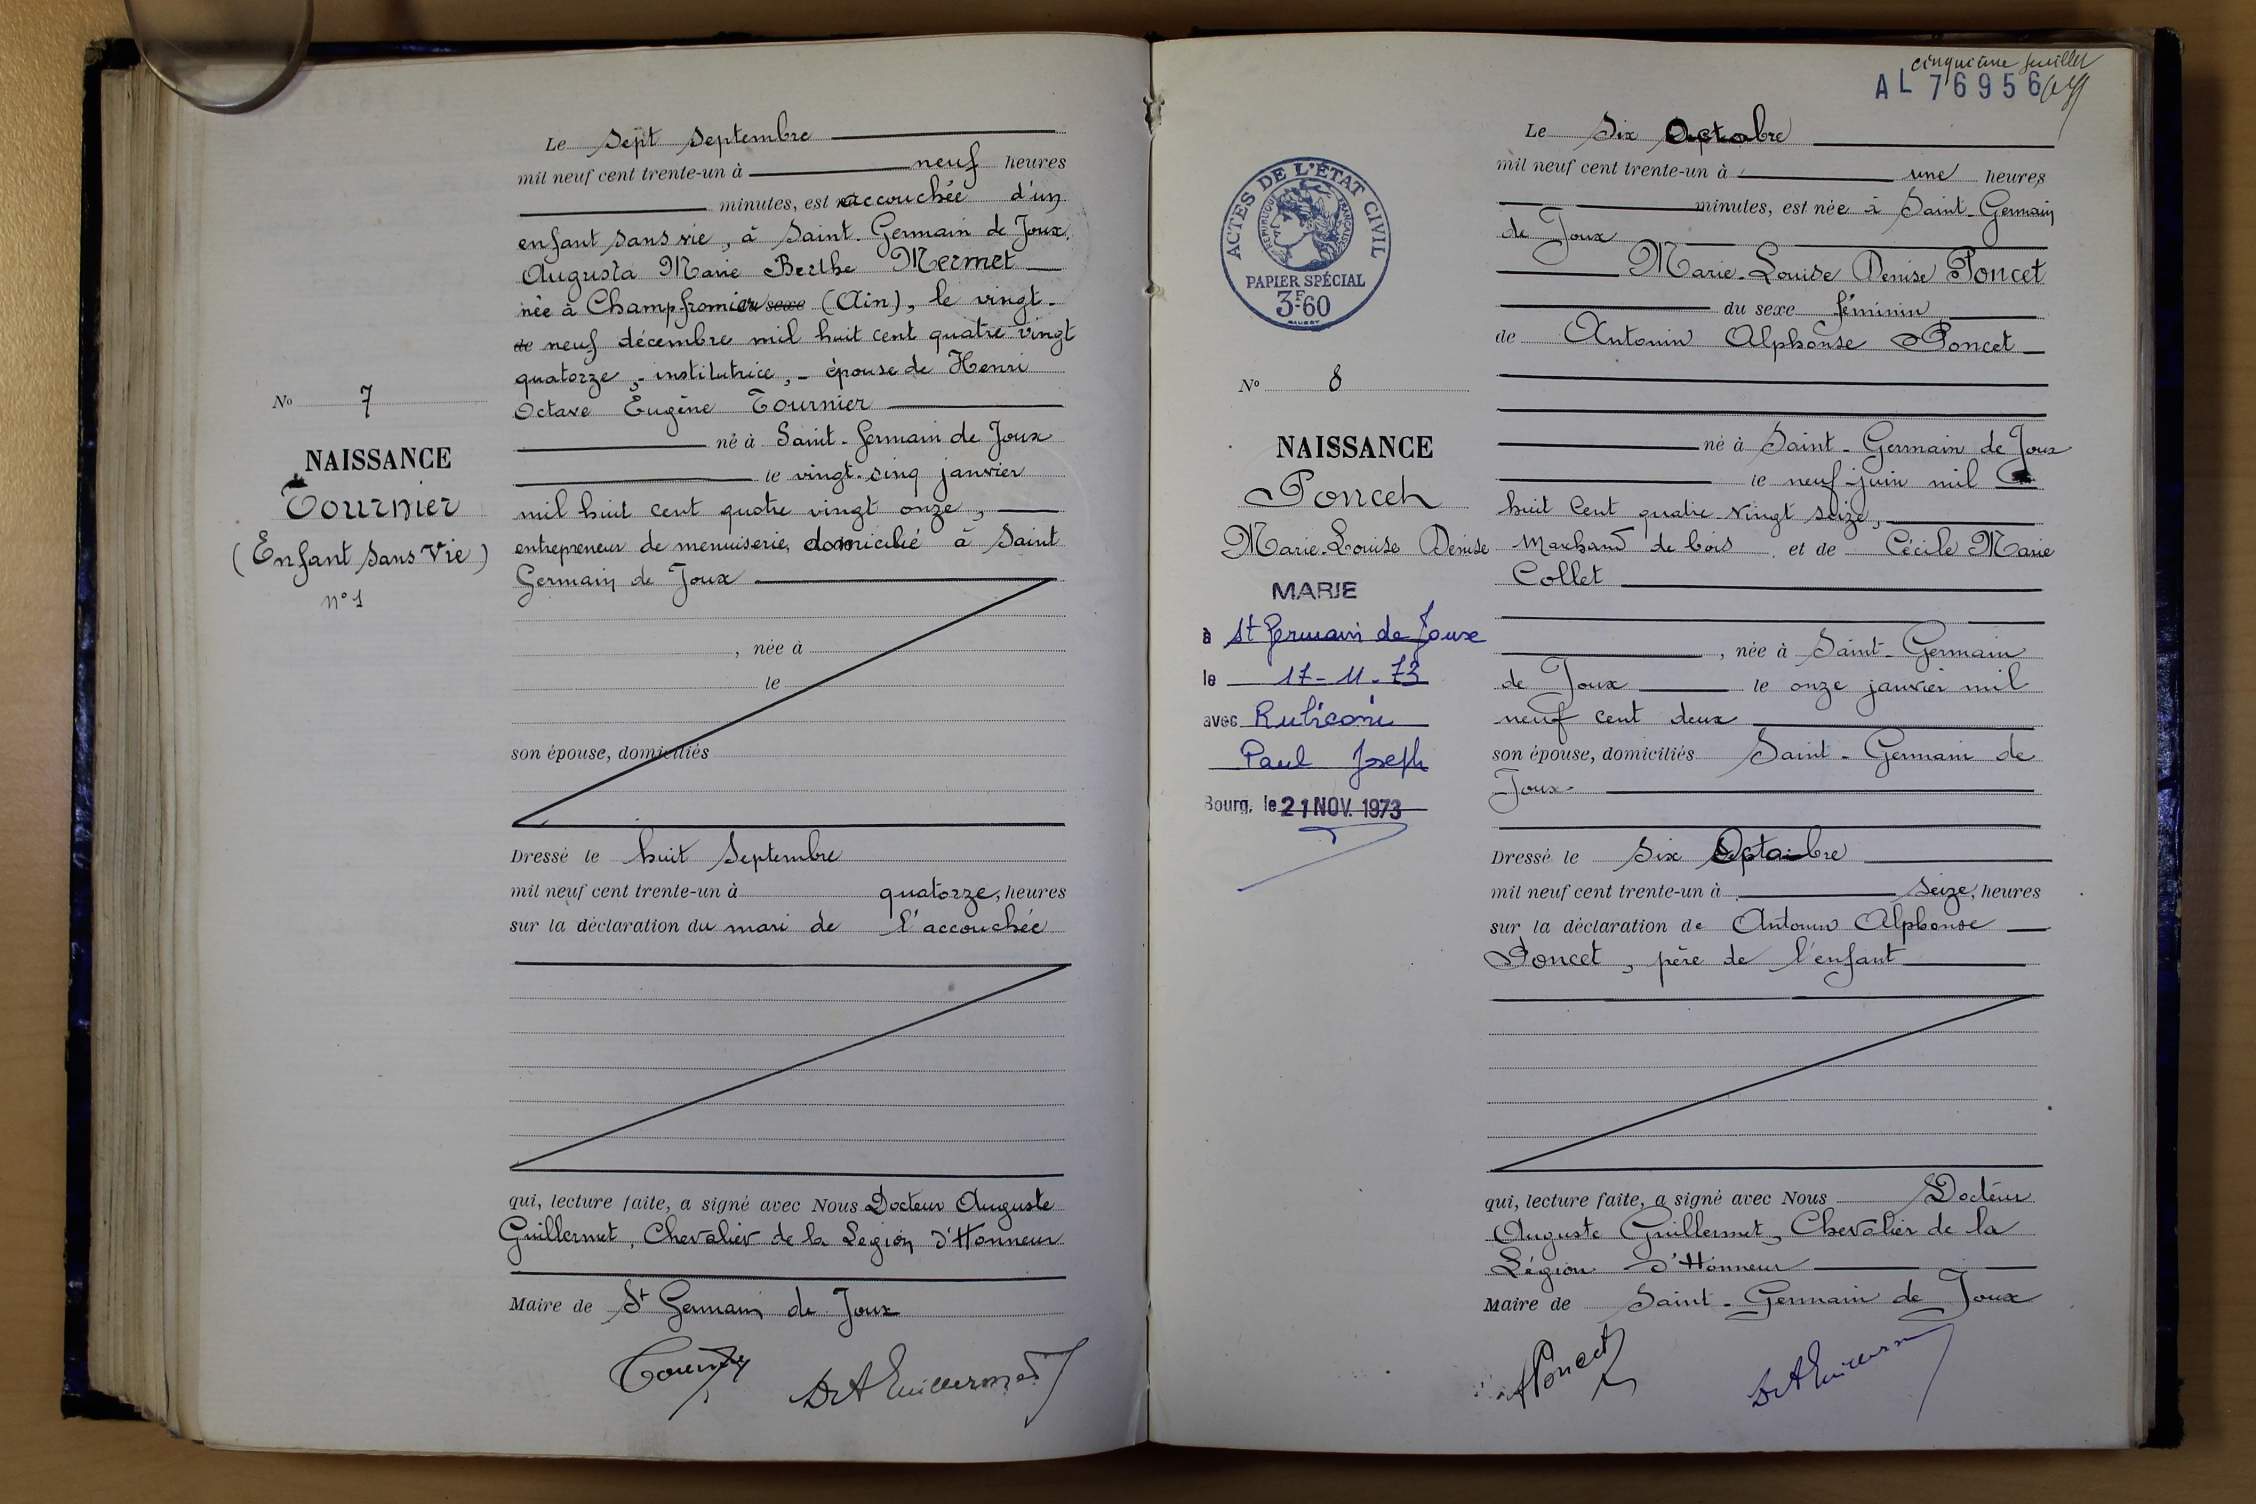 Le Sept Septembre
mil neuf cent trente-un à neuf heures
minutes, est accouchée d'un
enfant sans vie, à Saint-Germain de Joux,
Augusta Marie Berthe Mermet
née à Champfromier sexe (Ain), le vingt-
de neuf décembre mil huit cent quatre vingt
quatorze, - institutrice, - épouse de Henri
Octave Eugène Tournier
né à Saint-Germain de Joux
le vingt-cinq janvier
mil huit cent quatre vingt onze,
entrepreneur de menuiserie, domicilié à Saint
Germain de Joux
, née à
le
son épouse, domiciliés
Dressé le huit Septembre
mil neuf cent trente-un à quatorze, heures
sur la déclaration du mari de l'accouchée
qui, lecture faite, a signé avec Nous Docteur Auguste
Guillermet, Chevalier de la Légion d'Honneur
Maire de St Germain de Joux
Tournier DrAGuillermet
No 7
NAISSANCE
Tournier
(Enfant sans Vie)
n° 1
cinquième feuillet
AL 76956
ACTES DE L'ÉTAT CIVIL
RÉPUBLIQUE FRANÇAISE
PAPIER SPÉCIAL
3F60
No 8
NAISSANCE
Poncet
Marie-Louise Denise
MARIE
à St Germain de Joux
le 17-11-73
avec Rubiconi
Paul Joseph
Bourg, le 21 NOV. 1973
Le Six Octobre
mil neuf cent trente-un à une heures
minutes, est née à Saint-Germain
de Joux
Marie-Louise Denise Poncet
du sexe féminin
de Antonin Alphonse Poncet
né à Saint-Germain de Joux
le neuf juin mil
huit cent quatre-vingt seize,
marchand de bois et de Cécile Marie
Collet
, née à Saint-Germain
de Joux le onze janvier mil
neuf cent deux
son épouse, domiciliés Saint-Germain de
Joux
Dressé le Six Octobre
mil neuf cent trente-un à seize, heures
sur la déclaration de Antonin Alphonse
Poncet, père de l'enfant
qui, lecture faite, a signé avec Nous Docteur
Auguste Guillermet, Chevalier de la
Légion d'Honneur
Maire de Saint-Germain de Joux
APoncet DrAGuillerm